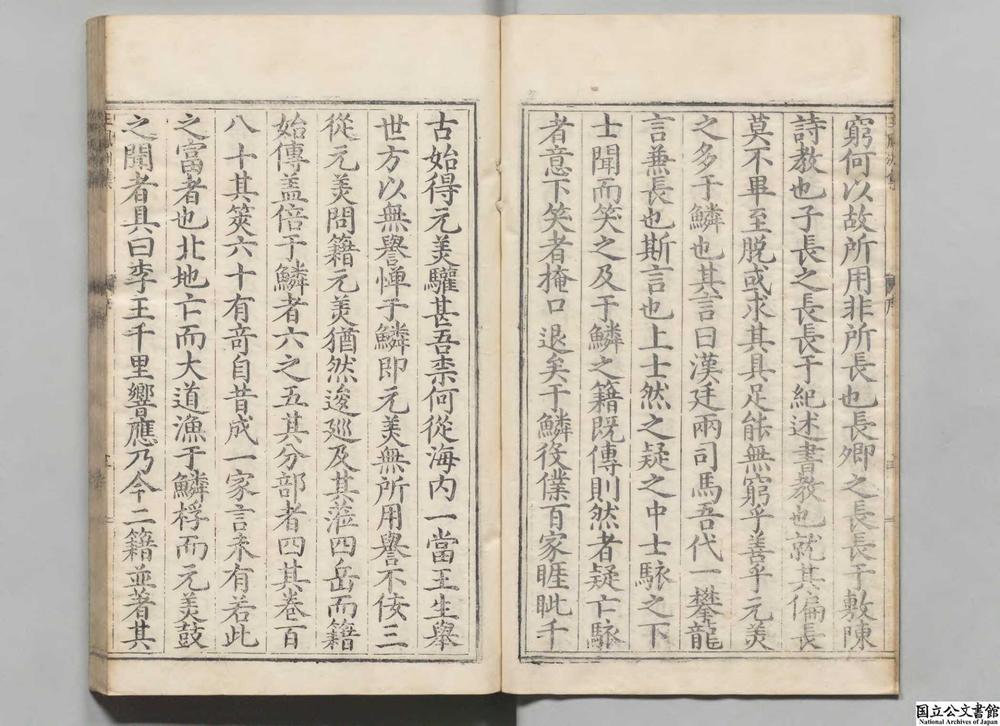 窮何以故所用非所長也長卿之長長于敷陳
詩教也子長之長長于紀述書教也就其偏長
莫不畢至脫或求其具足能無窮乎善乎元美
之多于鱗也其言曰漢廷兩司馬吾代一攀龍
言兼長也斯言也上士然之疑之中士駭之下
士聞而笑之及于鱗之籍既傳則然者疑亡駭
者意下笑者掩口退矣于鱗役僕百家睚眦千
古始得元美驩甚吾柰何從海内一當王生舉
世方以無譽憚于鱗即元美無所用譽不佞三
從元美問籍元美猶然逡廵及其蒞四岳而籍
始傳盖倍于鱗者六之五其分部者四其卷百
八十其筴六十有竒自昔成一家言未有若此
之富者也北地亡而大道漁于鱗桴而元美鼓
之聞者具曰李王千里響應乃今二籍並著其
国立公文書館
National Archives of Japan